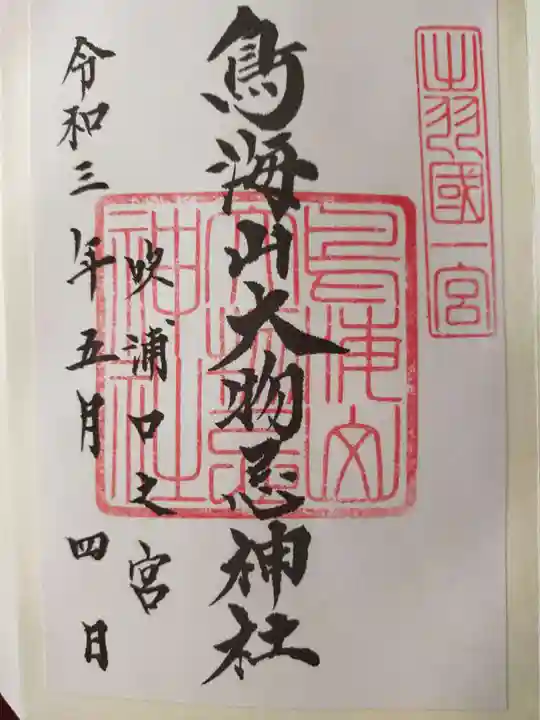 出羽國一宮
鳥海山大物忌神社
鳥海山大物忌神社
吹浦口之宮
令和三年五月四日